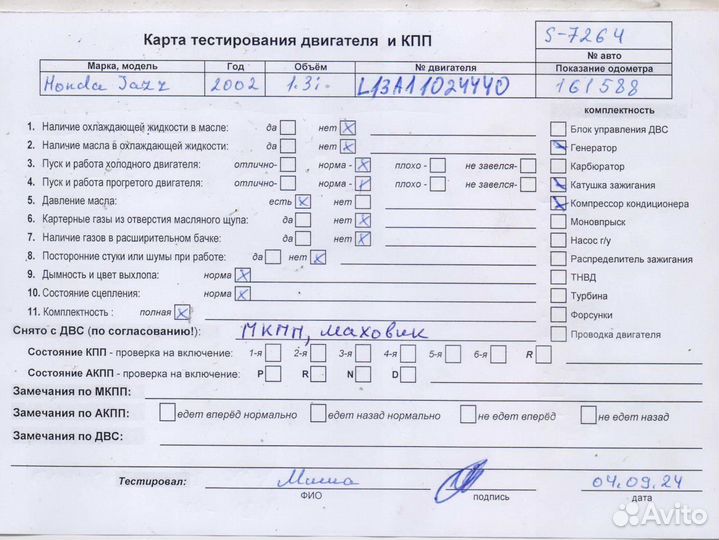 Карта тестирования двигателя и КПП
S-7264
№ авто
Марка, модель Год Объём № двигателя Показание одометра
Honda Jazz 2002 1.3i L13A11024440 161588
комплектность
1. Наличие охлаждающей жидкости в масле: да нет X
2. Наличие масла в охлаждающей жидкости: да нет X
3. Пуск и работа холодного двигателя: отлично- норма - X плохо - не завелся-
4. Пуск и работа прогретого двигателя: отлично- норма - плохо - не завелся-
5. Давление масла: есть X нет
6. Картерные газы из отверстия масляного щупа: да нет X
7. Наличие газов в расширительном бачке: да нет X
8. Посторонние стуки или шумы при работе: да нет X
9. Дымность и цвет выхлопа: норма X
10. Состояние сцепления: норма X
11. Комплектность : полная X
Блок управления ДВС
Генератор
Карбюратор
Катушка зажигания
Компрессор кондиционера
Моновпрыск
Насос г/у
Распределитель зажигания
ТНВД
Турбина
Форсунки
Проводка двигателя
Снято с ДВС (по согласованию!): МКПП, маховик
Состояние КПП - проверка на включение: 1-я 2-я 3-я 4-я 5-я 6-я R
Состояние АКПП - проверка на включение: P R N D
Замечания по МКПП:
Замечания по АКПП: едет вперёд нормально едет назад нормально не едет вперёд не едет назад
Замечания по ДВС:
Тестировал: Миша 04.09.24
ФИО подпись дата
Avito